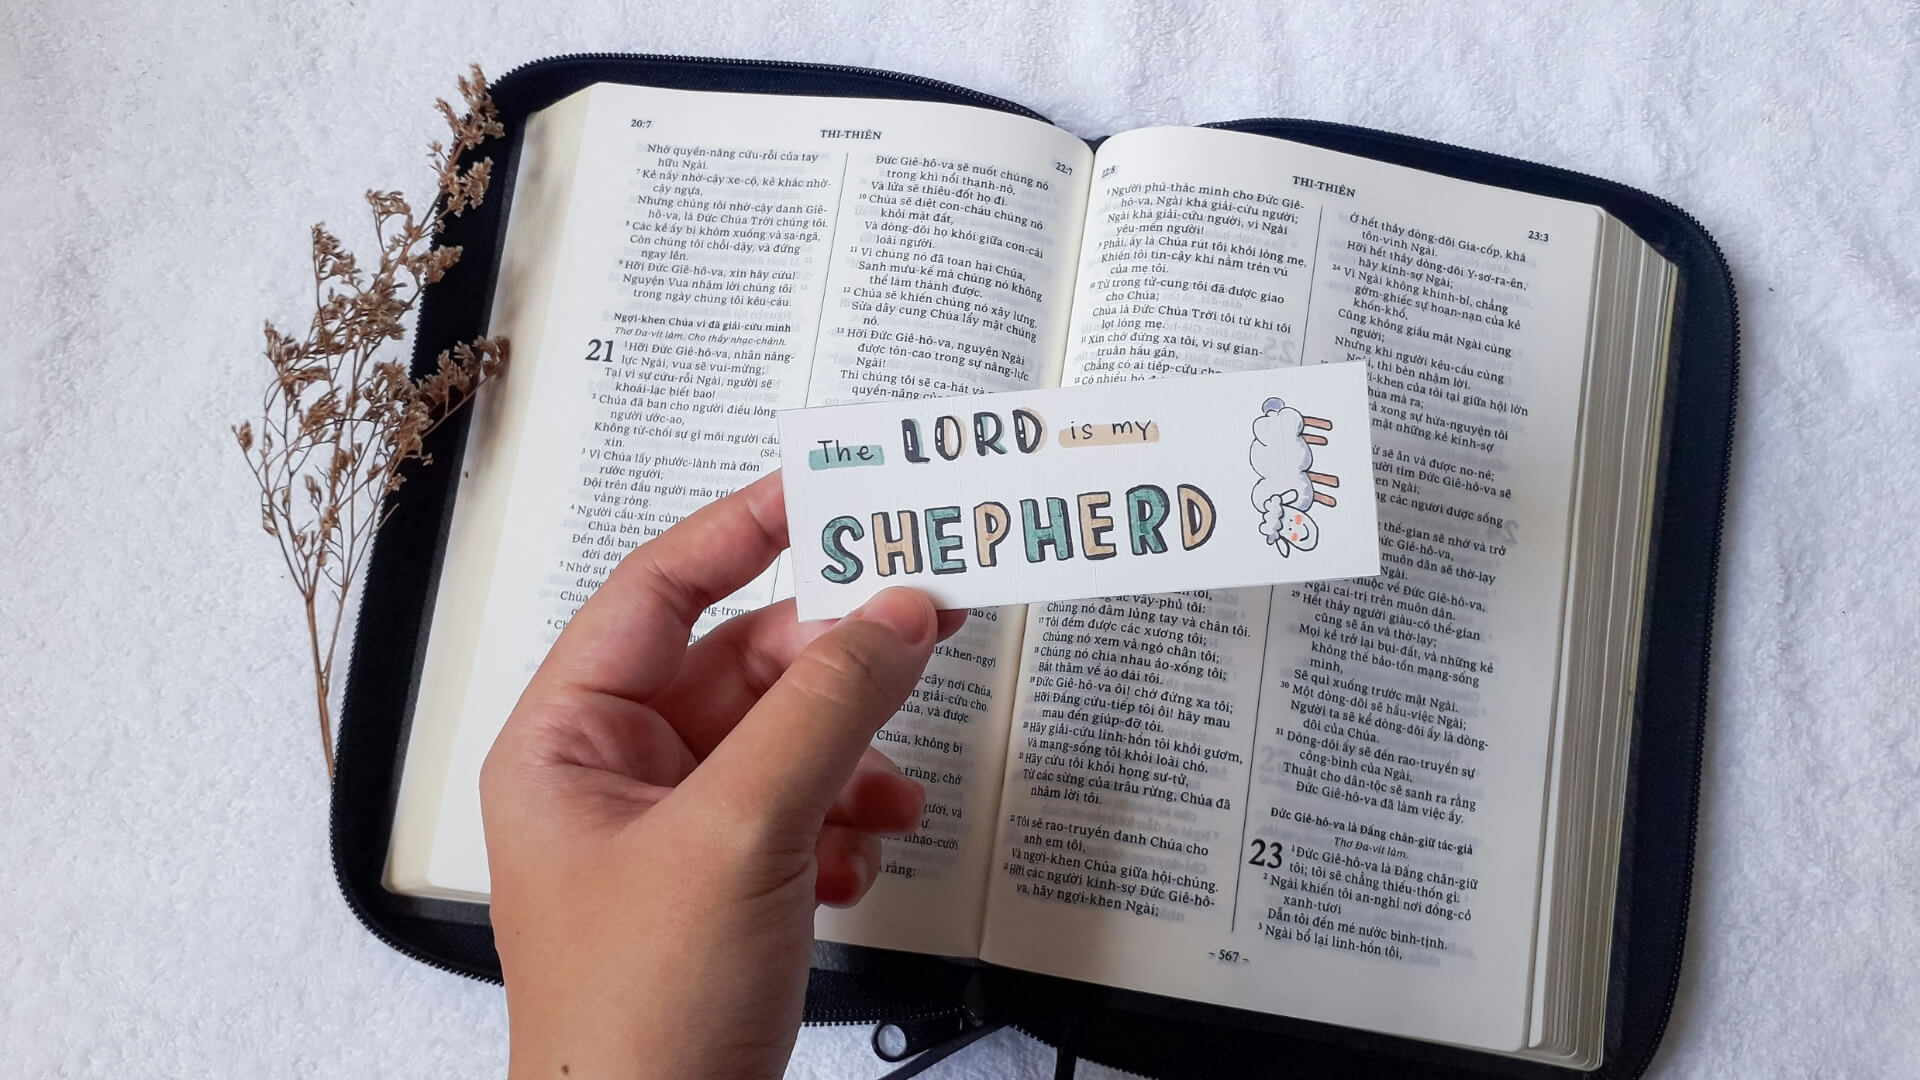 20:7
THI-THIÊN
22:7
Nhờ quyền-năng cứu-rỗi của tay
hữu Ngài.
7 Kẻ nầy nhờ-cậy xe-cộ, kẻ khác nhờ-
cậy ngựa,
Nhưng chúng tôi nhờ-cậy danh Giê-
hô-va, là Đức Chúa Trời chúng tôi.
8 Các kẻ ấy bị khòm xuống và sa-ngã,
Còn chúng tôi chỗi-dậy, và đứng
ngay lên.
9 Hỡi Đức Giê-hô-va, xin hãy cứu!
Nguyện Vua nhậm lời chúng tôi
trong ngày chúng tôi kêu-cầu.
Ngợi-khen Chúa vì đã giải-cứu mình
Thơ Đa-vít làm. Cho thầy nhạc-chánh.
21 1 Hỡi Đức Giê-hô-va, nhân năng-
lực Ngài, vua sẽ vui-mừng;
Tại vì sự cứu-rỗi Ngài, người sẽ
khoái-lạc biết bao!
2 Chúa đã ban cho người điều lòng
người ước-ao,
Không từ-chối sự gì môi người cầu
xin.
3 Vì Chúa lấy phước-lành mà đón
rước người;
Đội trên đầu người mão triều
vàng ròng.
4 Người cầu-xin cùng
Chúa bèn ban
Đến đỗi ban
đời đời
5 Nhờ sự
được
Chúa
Đức Giê-hô-va sẽ nuốt chúng nó
trong khi nổi thạnh-nộ,
Và lửa sẽ thiêu-đốt họ đi.
10 Chúa sẽ diệt con-cháu chúng nó
khỏi mặt đất,
Và dòng-dõi họ khỏi giữa con-cái
loài người.
11 Vì chúng nó đã toan hại Chúa,
Sanh mưu-kế mà chúng nó không
thể làm thành được.
12 Chúa sẽ khiến chúng nó xây lưng,
Sửa dây cung Chúa lẩy mặt chúng
nó.
13 Hỡi Đức Giê-hô-va, nguyện Ngài
được tôn-cao trong sự năng-lực
Ngài!
Thì chúng tôi sẽ ca-hát và
quyền-năng
khen-ngợi
cậy nơi Chúa,
giải-cứu cho.
và được
Chúa, không bị
trùng, chớ
và
nhạo-cười
rằng:
The LORD is my
SHEPHERD
THI-THIÊN
23:3
8 Người phú-thác mình cho Đức Giê-
hô-va, Ngài khá giải-cứu người;
Ngài khá giải-cứu người, vì Ngài
yêu-mến người!
9 Phải, ấy là Chúa rút tôi khỏi lòng mẹ,
Khiến tôi tin-cậy khi nằm trên vú
của mẹ tôi.
10 Từ trong tử-cung tôi đã được giao
cho Chúa;
Chúa là Đức Chúa Trời tôi từ khi tôi
lọt lòng mẹ.
11 Xin chớ đứng xa tôi, vì sự gian-
truân hầu gần,
Chẳng có ai tiếp-cứu cho
12 Có nhiều bò
vây-phủ tôi:
Chúng nó đâm lủng tay và chân tôi.
17 Tôi đếm được các xương tôi;
Chúng nó xem và ngó chân tôi;
18 Chúng nó chia nhau áo-xống tôi;
Bắt thăm về áo dài tôi.
19 Đức Giê-hô-va ôi! chớ đứng xa tôi;
Hỡi Đấng cứu-tiếp tôi ôi! hãy mau
mau đến giúp-đỡ tôi.
20 Hãy giải-cứu linh-hồn tôi khỏi gươm,
Và mạng-sống tôi khỏi loài chó.
21 Hãy cứu tôi khỏi họng sư-tử,
Từ các sừng của trâu rừng, Chúa đã
nhậm lời tôi.
22 Tôi sẽ rao-truyền danh Chúa cho
anh em tôi,
Và ngợi-khen Chúa giữa hội-chúng.
23 Hỡi các người kính-sợ Đức Giê-hô-
va, hãy ngợi-khen Ngài;
Ớ hết thảy dòng-dõi Gia-cốp, khá
tôn-vinh Ngài.
Hỡi hết thảy dòng-dõi Y-sơ-ra-ên,
hãy kính-sợ Ngài;
24 Vì Ngài không khinh-bỉ, chẳng
gớm-ghiếc sự hoạn-nạn của kẻ
khốn-khổ,
Cũng không giấu mặt Ngài cùng
người;
Nhưng khi người kêu-cầu cùng
thì bèn nhậm lời.
khen của tôi tại giữa hội lớn
mà ra;
xong sự hứa-nguyện tôi
mặt những kẻ kính-sợ
sẽ ăn và được no-nê;
tìm Đức Giê-hô-va sẽ
Ngài;
các người được sống
thế-gian sẽ nhớ và trở
Giê-hô-va,
muôn dân sẽ thờ-lạy
Ngài.
thuộc về Đức Giê-hô-va,
Ngài cai-trị trên muôn dân.
29 Hết thảy người giàu-có thế-gian
cũng sẽ ăn và thờ-lạy;
Mọi kẻ trở lại bụi-đất, và những kẻ
không thể bảo-tồn mạng-sống
mình,
Sẽ quì xuống trước mặt Ngài.
30 Một dòng-dõi sẽ hầu-việc Ngài;
Người ta sẽ kể dòng-dõi ấy là dòng-
dõi của Chúa.
31 Dòng-dõi ấy sẽ đến rao-truyền sự
công-bình của Ngài,
Thuật cho dân-tộc sẽ sanh ra rằng
Đức Giê-hô-va đã làm việc ấy.
Đức Giê-hô-va là Đấng chăn-giữ tác-giả
Thơ Đa-vít làm.
23 1 Đức Giê-hô-va là Đấng chăn-giữ
tôi; tôi sẽ chẳng thiếu-thốn gì.
2 Ngài khiến tôi an-nghỉ nơi đồng-cỏ
xanh-tươi
Dẫn tôi đến mé nước bình-tịnh.
3 Ngài bổ lại linh-hồn tôi,
– 567 –